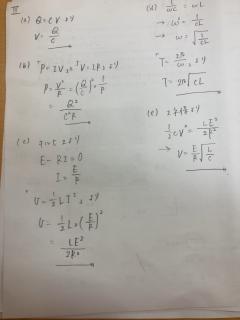 III
(a) Q = CV より
V = Q/C
(b) "P = IV, "V = IR, より
P = V²/R = (Q/C)² · 1/R
= Q²/C²R
(c) より
E - RI = 0
I = E/R
U = 1/2 LI² より
U = 1/2 L × (E/R)²
= LE²/2R²
(d) 1/ωC = ωL
→ ω² = 1/CL
ω = √1/CL
"T = 2π/ω, より
T = 2π√CL
(e) より
1/2 CV² = LE²/2R²
→ V = E/R √L/C